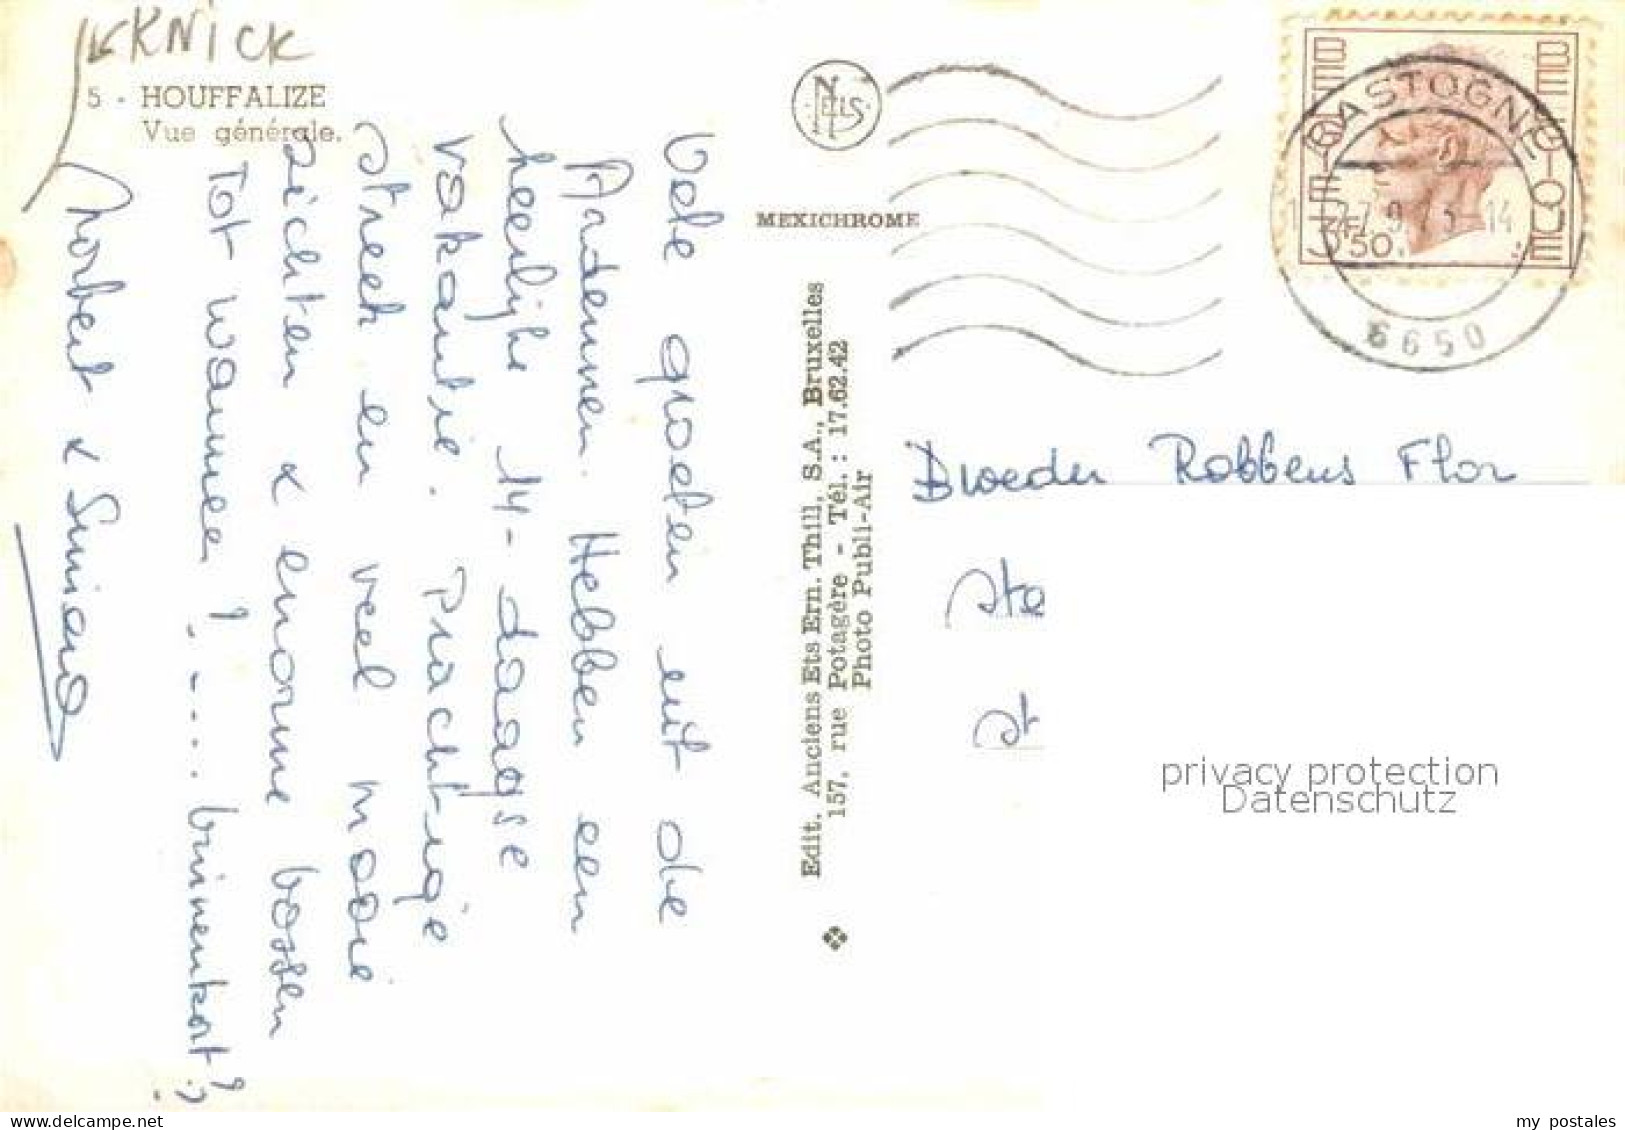 KNICK
5 - HOUFFALIZE
Vue générale.
Vele groeten uit de
Aardennen. Hebben een
heerlijke 14-daagse
vakantie. Prachtige
streek en veel mooie
zichten & enorme bossen
Tot wanneer ?..... binnenkort?
Norbert &
NELS
MEXICHROME
Edit. Anciens Ets Ern. Thill, S.A., Bruxelles
157, rue Potagère - Tél. : 17.62.42
Photo Publi-Air
BELGIQUE
BELGIE
BASTOGNE
3,50
6650
Broeder Robbens Flor
Ste
St
privacy protection
Datenschutz
my postales